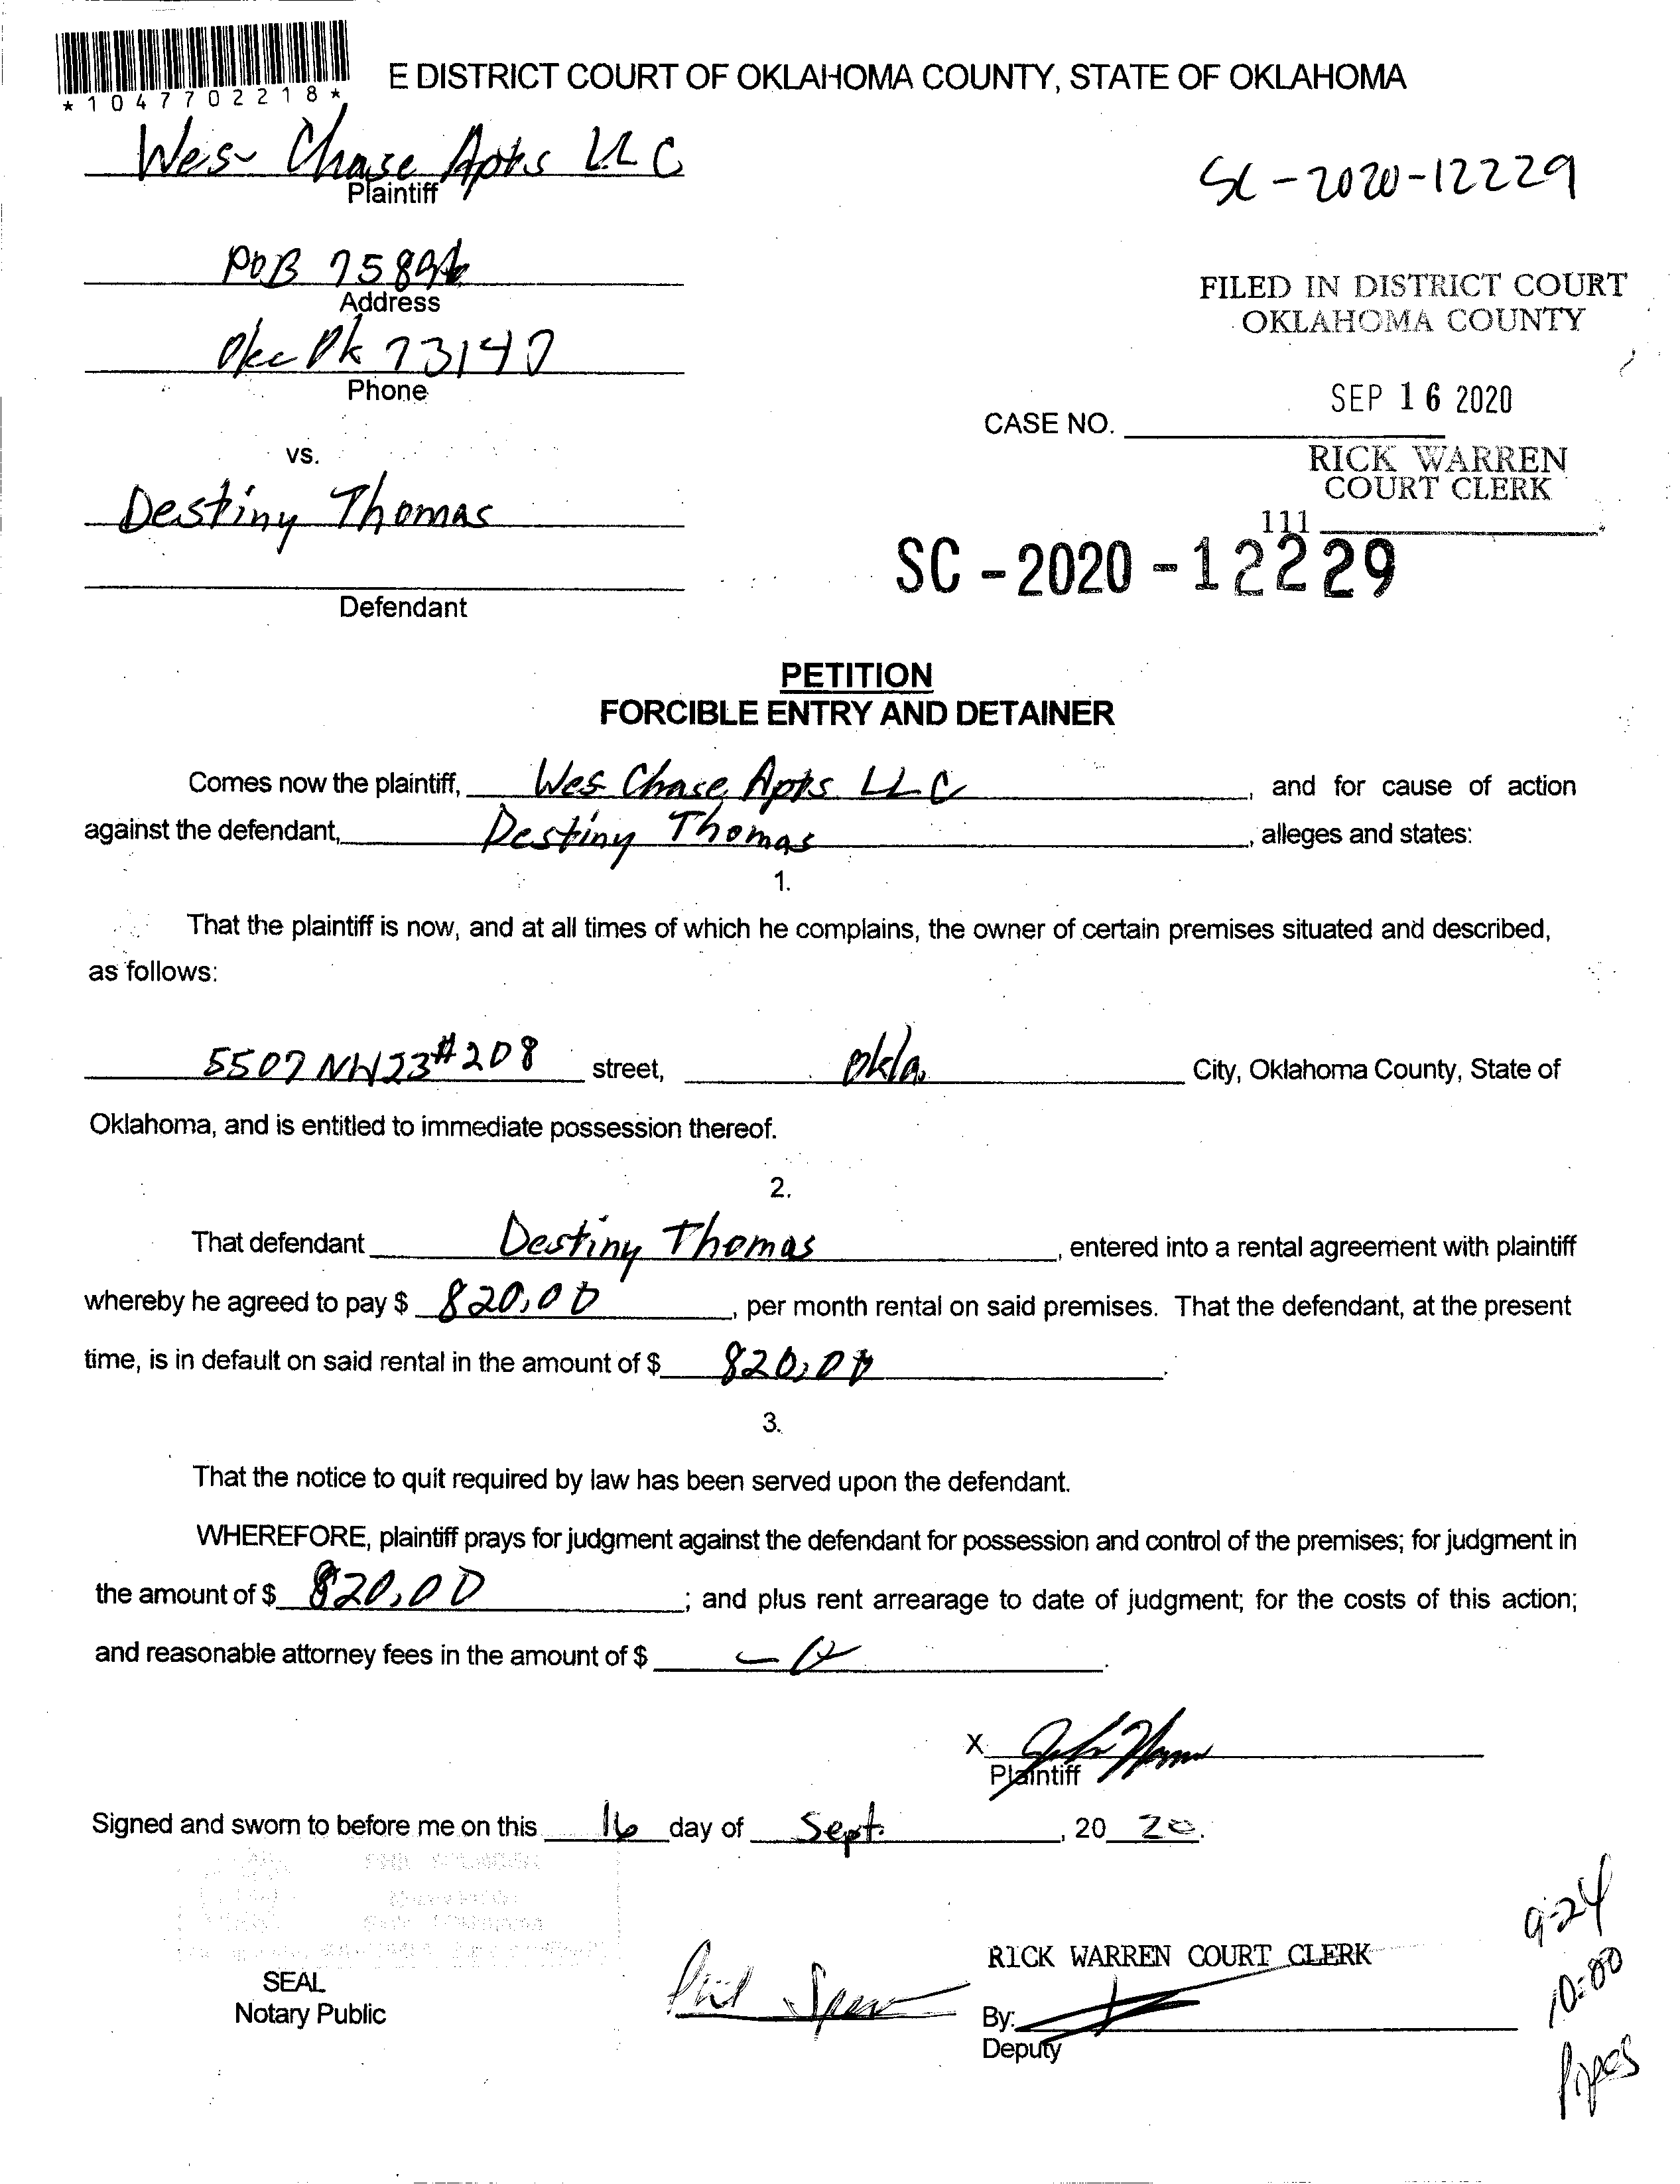 *1047702218*
E DISTRICT COURT OF OKLAHOMA COUNTY, STATE OF OKLAHOMA
Wes Chase Apts LLC
Plaintiff
SC-2020-12229
POB
Address
FILED IN DISTRICT COURT
OKLAHOMA COUNTY
Okc Ok 73147
Phone
SEP 16 2020
CASE NO.
RICK WARREN
COURT CLERK
vs.
Destiny Thomas
111
SC-2020-12229
Defendant
PETITION
FORCIBLE ENTRY AND DETAINER
Comes now the plaintiff, Wes Chase Apts LLC, and for cause of action
against the defendant, Destiny Thomas, alleges and states:
1.
That the plaintiff is now, and at all times of which he complains, the owner of certain premises situated and described,
as follows:
5507 NW 23 #208 street, Okla. City, Oklahoma County, State of
Oklahoma, and is entitled to immediate possession thereof.
2.
That defendant Destiny Thomas, entered into a rental agreement with plaintiff
whereby he agreed to pay $ 820.00, per month rental on said premises. That the defendant, at the present
time, is in default on said rental in the amount of $ 820.00.
3.
That the notice to quit required by law has been served upon the defendant.
WHEREFORE, plaintiff prays for judgment against the defendant for possession and control of the premises; for judgment in
the amount of $ 820.00; and plus rent arrearage to date of judgment; for the costs of this action;
and reasonable attorney fees in the amount of $
X
Plaintiff
Signed and sworn to before me on this 16 day of Sept., 20 20.
SEAL
Notary Public
RICK WARREN COURT CLERK
By:
Deputy
9-24
10:00